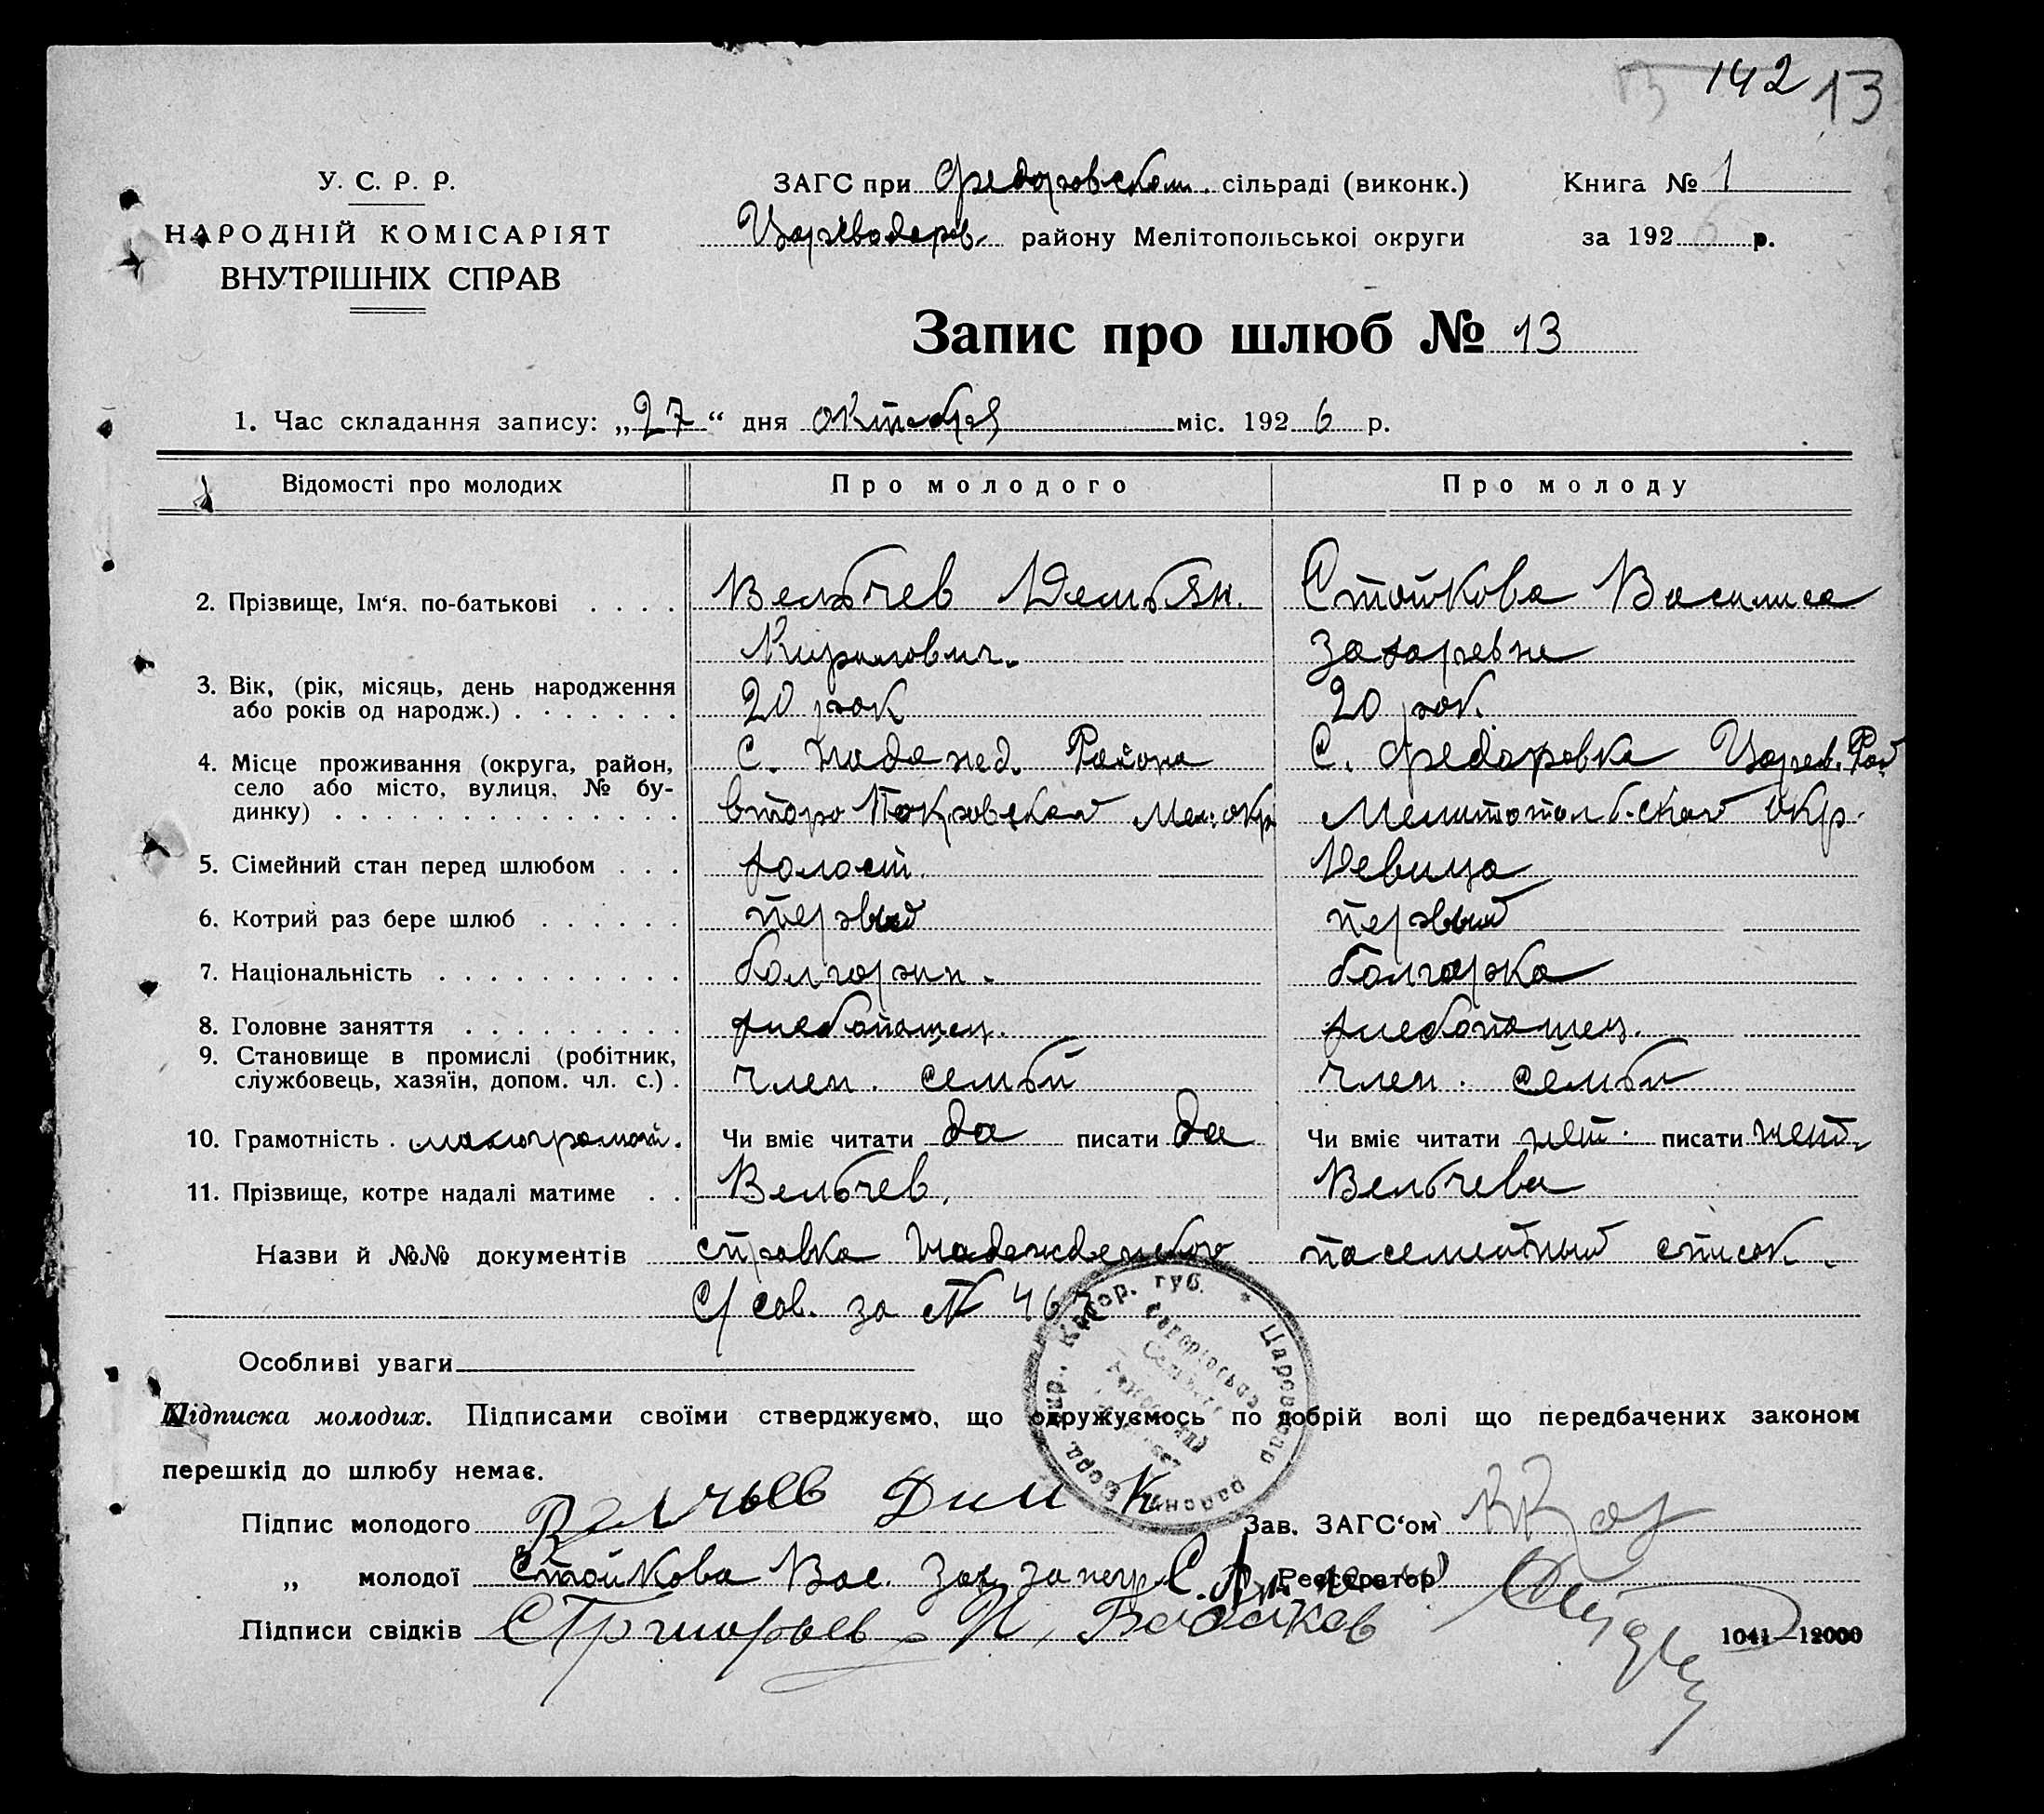 142 13
У. С. Р. Р.
НАРОДНІЙ КОМІСАРІЯТ
ВНУТРІШНІХ СПРАВ
ЗАГС при Федоровском сільраді (виконк.) Книга № 1
Цареводаров. району Мелітопольської округи за 1926 р.
Запис про шлюб № 13
1. Час складання запису: „27“ дня октября міс. 1926 р.
Відомості про молодих Про молодого Про молоду
2. Прізвище, Ім'я. по-батькові Вельчев Демьян. Стойкова Василиса
Кирилович. Захаревна
3. Вік, (рік, місяць, день народження 20 рок 20 рок.
або років од народж.)
4. Місце проживання (округа, район, С. Надежд. Района С. Федоровка Царев. Рай
село або місто, вулиця, № бу- второ Покровской Мел. окр. Мелитопольской окр.
динку)
5. Сімейний стан перед шлюбом холост. Девица
6. Котрий раз бере шлюб первый первый
7. Національність болгарин. болгарка
8. Головне заняття хлебопашец. хлебопашец.
9. Становище в промислі (робітник,
службовець, хазяїн, допом. чл. с.) член. семьи член. семьи
10. Грамотність малограмот. Чи вміє читати да писати да Чи вміє читати нет. писати нет.
11. Прізвище, котре надалі матиме Вельчев. Вельчева
Назви й №№ документів справка Надежденского посемейный список.
С/сов. за №
Особливі уваги
Підписка молодих. Підписами своїми стверджуємо, що одружуємось по добрій волі що передбачених законом
перешкід до шлюбу немає.
Підпис молодого Велчьев Дим К Зав. ЗАГС'ом
„ молодої Стойкова Вас. Зах. за негр. Реєстратор
Підписи свідків
1041—12000